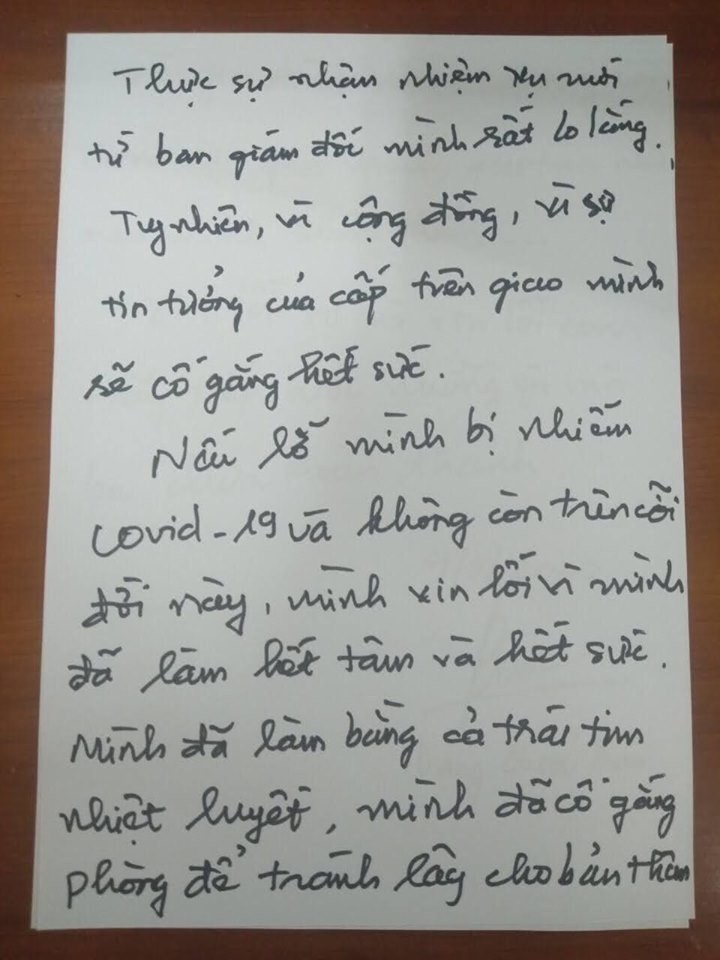 Thực sự nhận nhiệm vụ mới
từ ban giám đốc mình rất lo lắng.
Tuy nhiên, vì cộng đồng, vì sự
tin tưởng của cấp trên giao mình
sẽ cố gắng hết sức.
Nếu lỡ mình bị nhiễm
covid-19 và không còn trên cõi
đời này, mình xin lỗi vì mình
đã làm hết tâm và hết sức.
Mình đã làm bằng cả trái tim
nhiệt huyết, mình đã cố gắng
phòng để tránh lây cho bản thân